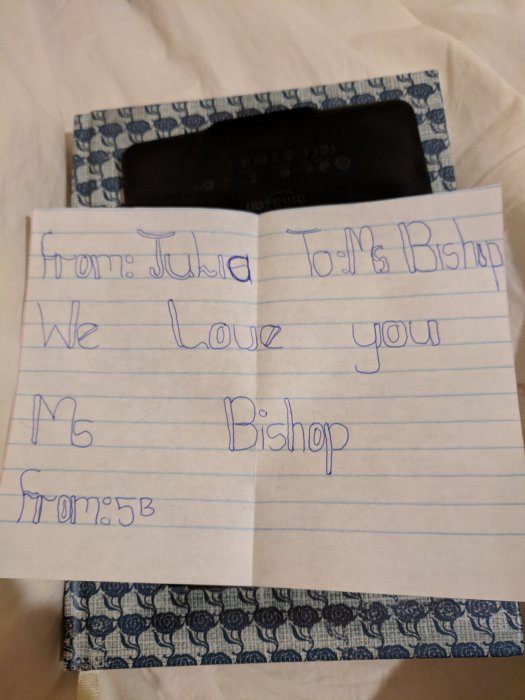 amazon
From: Julia To: Ms Bishop
We Love you
Ms Bishop
From: 5B